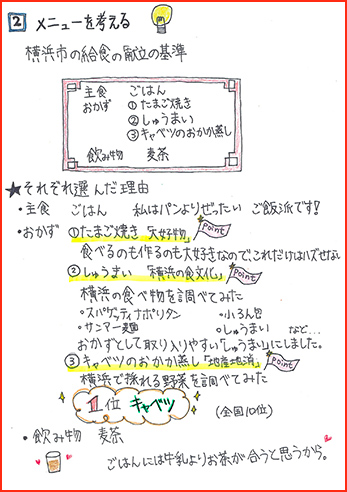 2 メニューを考える
横浜市の給食の献立の基準
主食 ごはん
おかず ①たまご焼き
②しゅうまい
③キャベツのおかか蒸し
飲み物 麦茶
★それぞれ選んだ理由
・主食 ごはん 私はパンよりぜったいご飯派です!
・おかず ①たまご焼き「大好物」 point
食べるのも作るのも大好きなので、これだけはハズせない
②しゅうまい 「横浜の食文化」 point
横浜の食べ物を調べてみた
・スパゲッティナポリタン ・小ろん包
・サンマー麺 ・しゅうまい など…
おかずとして取り入りやすい「しゅうまい」にしました。
③キャベツのおかか蒸し「地産地消」 point
横浜で採れる野菜を調べてみた
1位 キャベツ (全国10位)
・飲み物 麦茶
ごはんには牛乳よりお茶が合うと思うから。